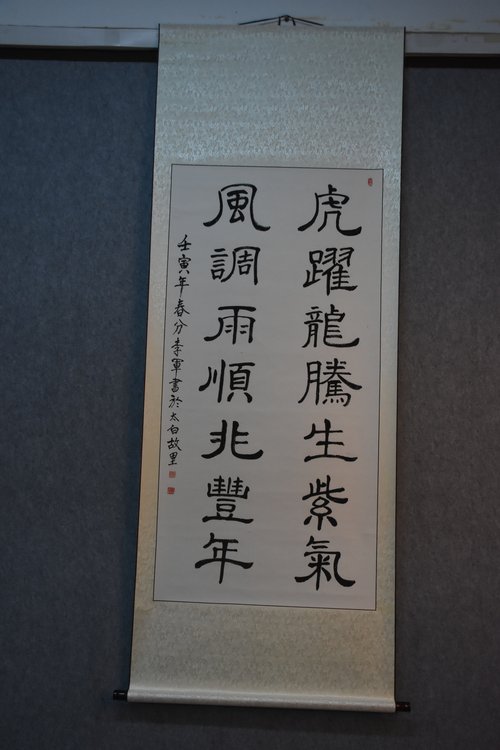 虎躍龍騰生紫氣
風調雨順兆豐年
壬寅年春分李軍書於太白故里